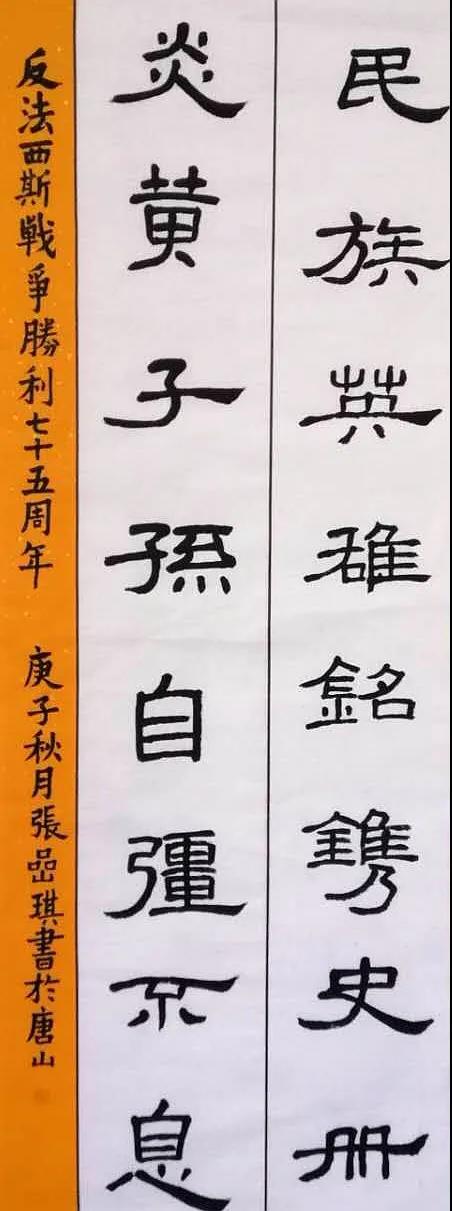 民族英雄銘鐫史册
炎黄子孫自彊不息
反法西斯戰爭勝利七十五周年 庚子秋月張嵒琪書於唐山